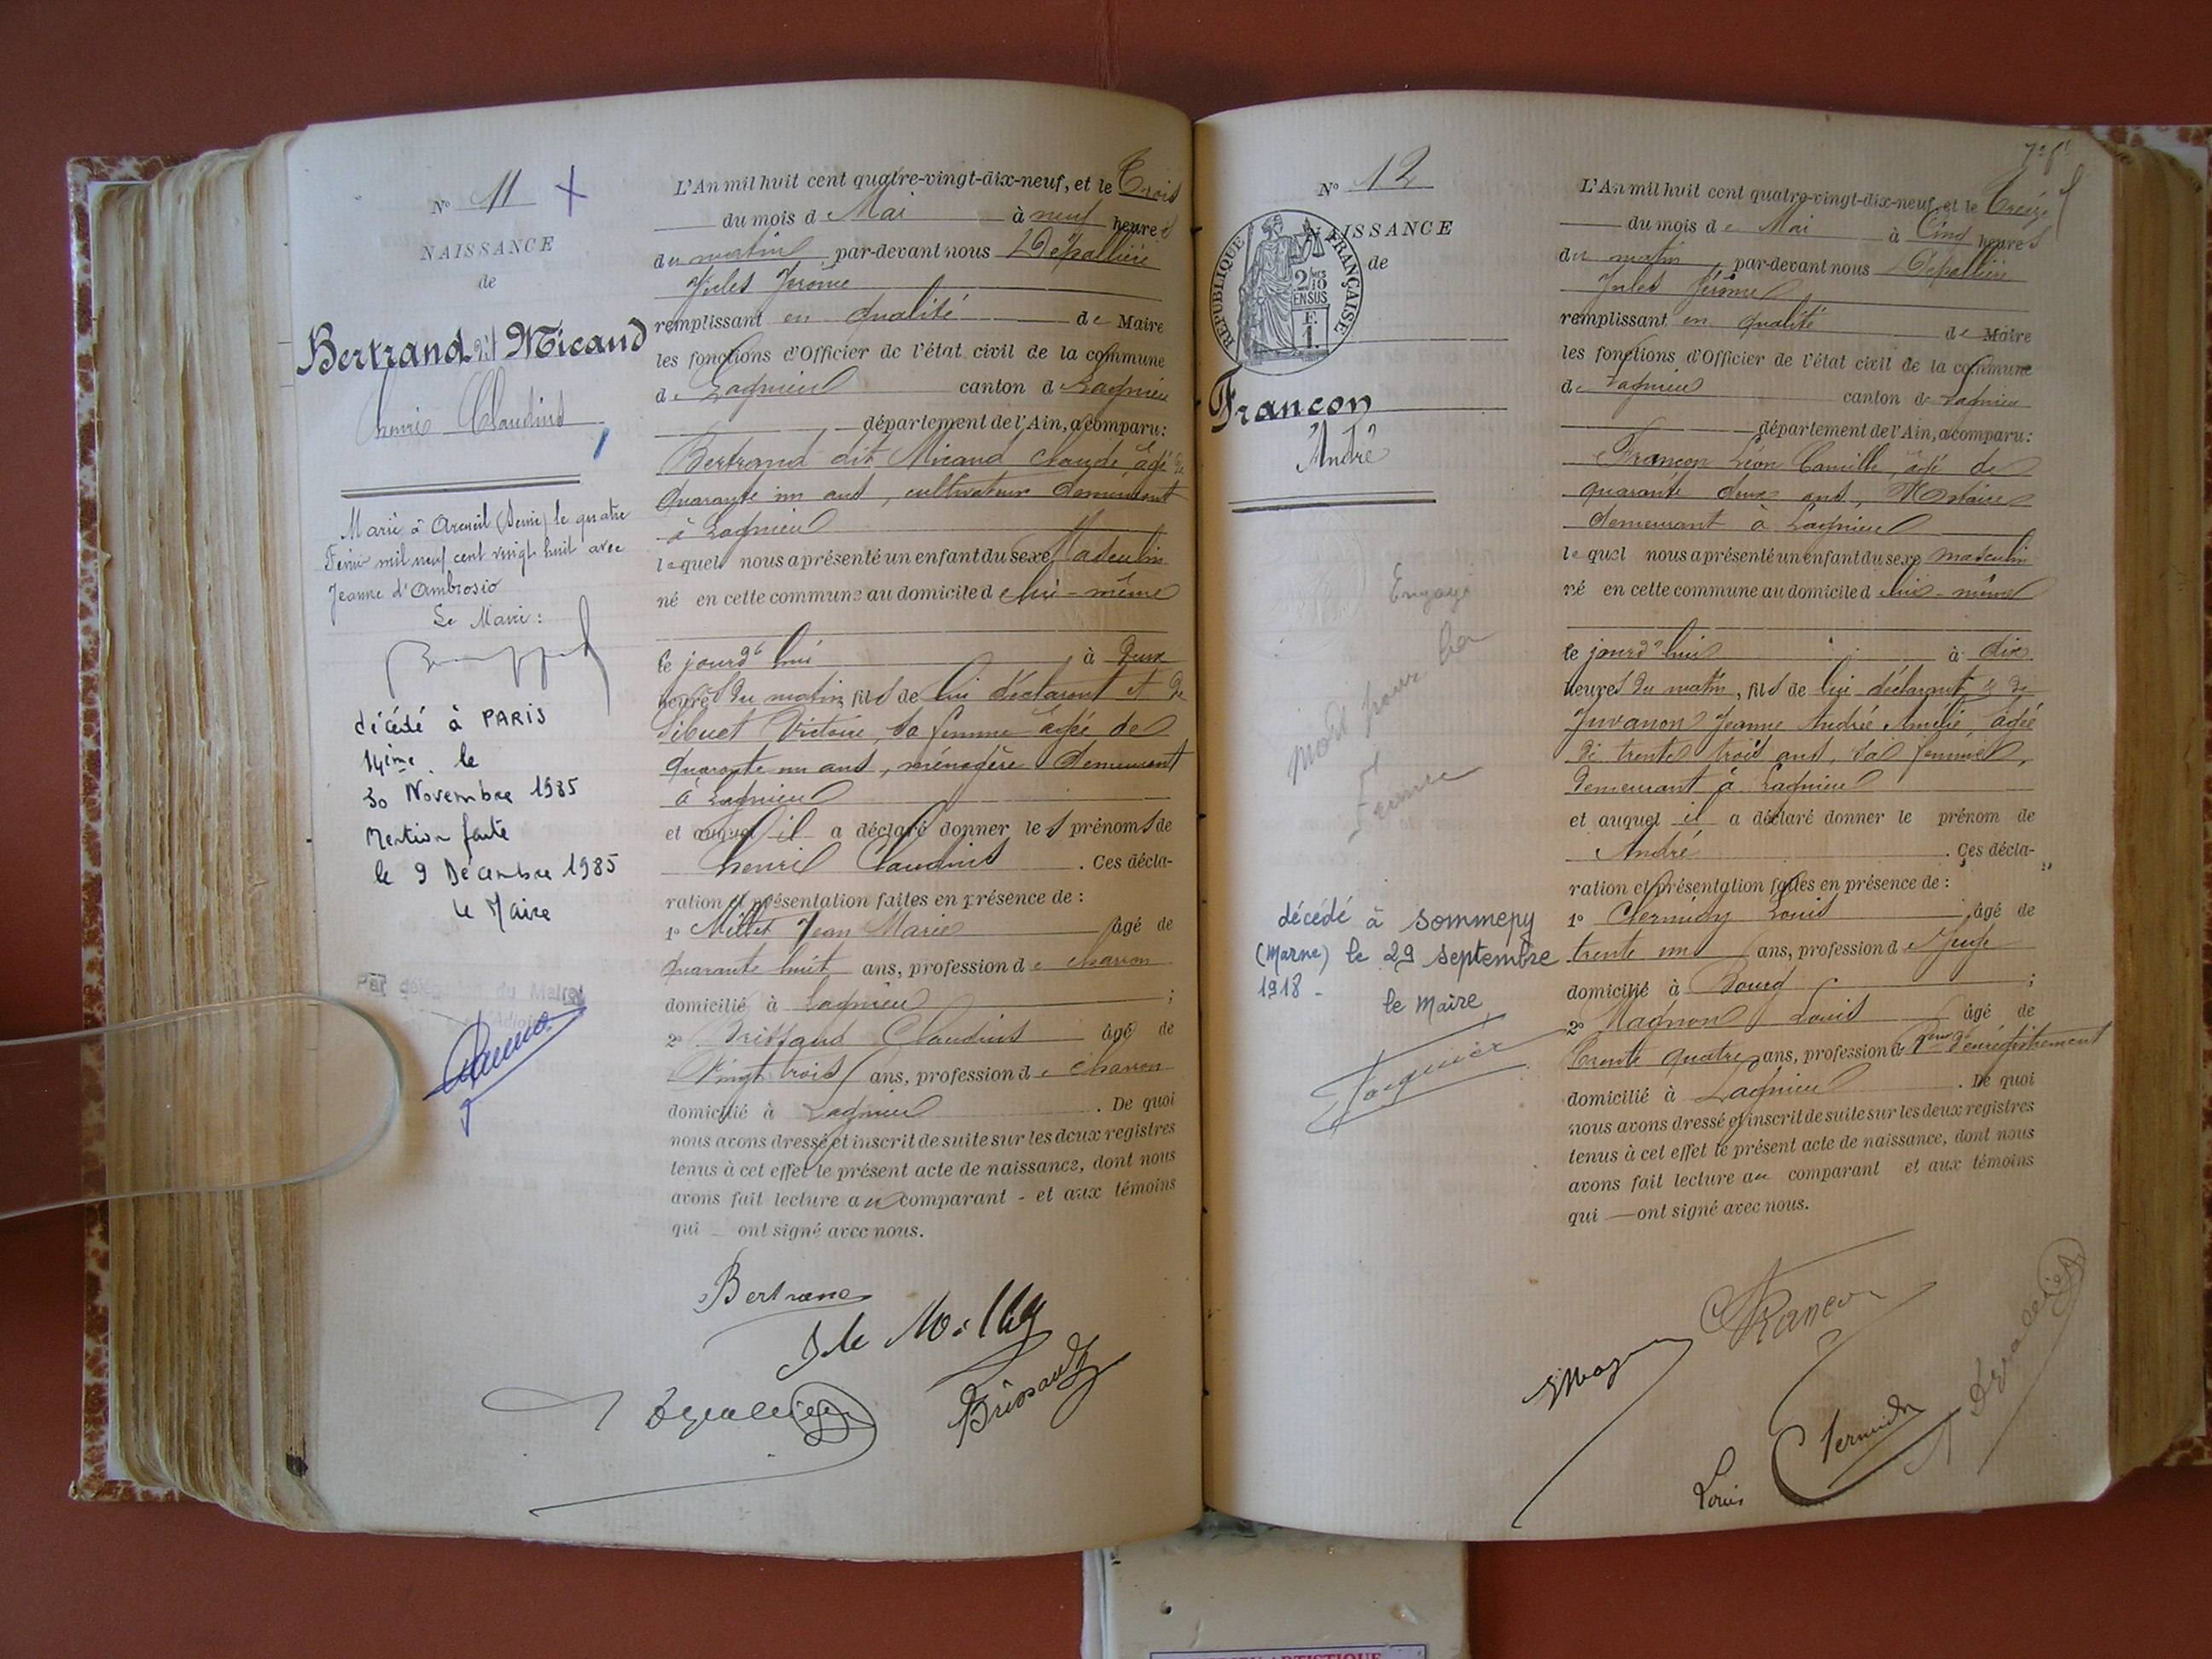 N° 11
NAISSANCE
de
Bertrand dit Micaud
henri Claudius
Marié à Arcueil (Seine) le quatre
Février mil neuf cent vingt huit avec
Jeanne d'Ambrosio
Le Maire :
décédé à PARIS
14ème le
30 Novembre 1985
Mention faite
le 9 Décembre 1985
Le Maire
Par délégation du Maire
L'Adjoint
L'An mil huit cent quatre-vingt-dix-neuf, et le Trois
du mois de Mai à neuf heures
du matin par-devant nous Dépallière
Jules Jérome
remplissant en qualité de Maire
les fonctions d'Officier de l'état civil de la commune
de Lagnieu canton de Lagnieu
département de l'Ain, a comparu:
Bertrand dit Micaud Claude, âgé de
quarante un ans, cultivateur demeurant
à Lagnieu
lequel nous a présenté un enfant du sexe Masculin
né en cette commune au domicile de lui-même
le jourd'hui à deux
heures du matin, fils de lui déclarant et de
Sibuet Victoire, sa femme âgée de
quarante un ans, ménagère demeurant
à Lagnieu
et auquel il a déclaré donner les prénoms de
henri Claudius . Ces décla-
ration et présentation faites en présence de :
1° Millet Jean Marie âgé de
quarante huit ans, profession de charron
domicilié à Lagnieu ;
2° Brissaud Claudius âgé de
Vingt trois ans, profession de charron
domicilié à Lagnieu . De quoi
nous avons dressé et inscrit de suite sur les deux registres
tenus à cet effet le présent acte de naissance, dont nous
avons fait lecture au comparant - et aux témoins
qui - ont signé avec nous.
Bertrand
Brissaud
N° 12
NAISSANCE
de
RÉPUBLIQUE FRANÇAISE
2/10
EN SUS
F.
1.
Francon
André
Engagé
mort pour la
France
décédé à Sommepy
(Marne) le 29 septembre
1918 -
le Maire
7e ft
L'An mil huit cent quatre-vingt-dix-neuf, et le Treize
du mois de Mai à Cinq heures
du matin, par-devant nous Dépallière
Jules Jérome
remplissant en qualité de Maire
les fonctions d'Officier de l'état civil de la commune
de Lagnieu canton de Lagnieu
département de l'Ain, a comparu:
Francon Léon Camille, âgé de
quarante deux ans, Notaire
demeurant à Lagnieu
lequel nous a présenté un enfant du sexe masculin
né en cette commune au domicile de lui-même
le jourd'hui à dix
heures du matin, fils de lui déclarant & de
Juvanon Jeanne Andrée Amélie âgée
de trente trois ans, sa femme,
demeurant à Lagnieu
et auquel il a déclaré donner le prénom de
André . Ces décla-
ration et présentation faites en présence de :
1° Chermidy Louis âgé de
trente un ans, profession de Juge
domicilié à Bourg ;
2° Magnon Louis âgé de
Trente quatre ans, profession de d'enregistrement
domicilié à Lagnieu . De quoi
nous avons dressé et inscrit de suite sur les deux registres
tenus à cet effet le présent acte de naissance, dont nous
avons fait lecture au comparant et aux témoins
qui — ont signé avec nous.
Francon
Louis Chermidy